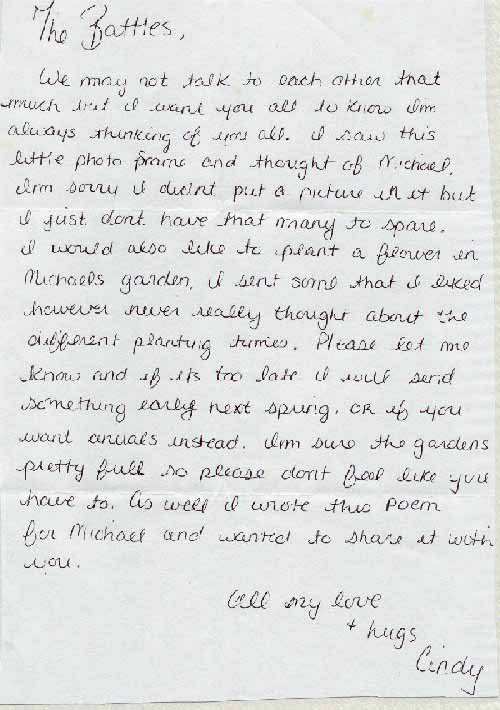 The Battles,
We may not talk to each other that
much but I want you all to know Im
always thinking of you all. I saw this
little photo frame and thought of Michael,
Im sorry I didnt put a picture in it but
I just dont have that many to spare.
I would also like to plant a flower in
Michaels garden, I sent some that I liked
however never really thought about the
different planting times. Please let me
know and if its too late I will send
something early next spring. OR if you
want anuals instead. Im sure the gardens
pretty full so please dont feel like you
have to. As well I wrote this poem
for Michael and wanted to share it with
you.
All my love
+ hugs
Cindy